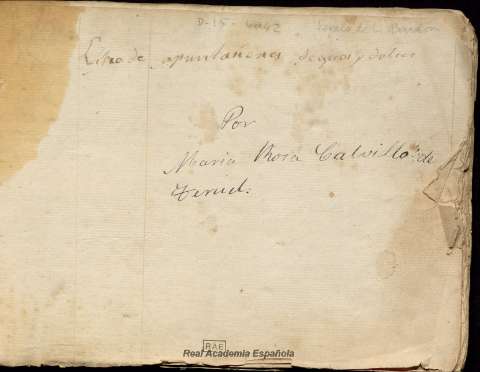 D-15-4042
Libro de apuntaciones de guisos y dulces
Por
Maria Rosa Calvillo de
Teruel.
RAE
Real Academia Española